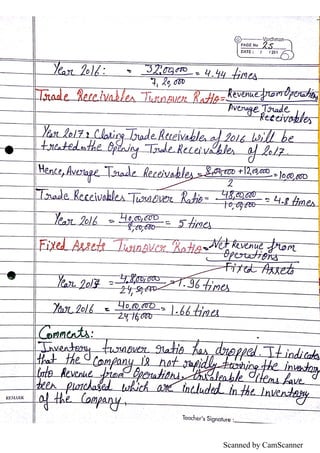 Youthman
PAGE No. 25
DATE: / / 201
Year 2016: = 32,00,000 / 7,20,000 = 4.44 times
Trade Receivables Turnover Ratio = Revenue from Operations / Average Trade Receivables
Year 2017: Closing Trade Receivables of 2016 will be
treated as the Opening Trade Receivables of 2017.
Hence, Average Trade Receivables = 8,00,000 + 12,00,000 / 2 = 10,00,000
Trade Receivables Turnover Ratio = 48,00,000 / 10,00,000 = 4.8 times
Year 2016 = 40,00,000 / 8,00,000 = 5 times
Fixed Assets Turnover Ratio = Net Revenue from Operations / Fixed Assets
Year 2017 = 4,800,000 / 24,50,000 = 1.96 times
Year 2016 = 40,00,000 / 24,16,000 = 1.66 times
Comments:
Inventory turnover ratio has dropped. It indicates
that the Company is not rapidly turning the inventory
into Revenue from Operations. Unsaleable Items have
been purchased which are included in the Inventory
of the Company.
REMARK
Teacher's Signature:
Scanned by CamScanner